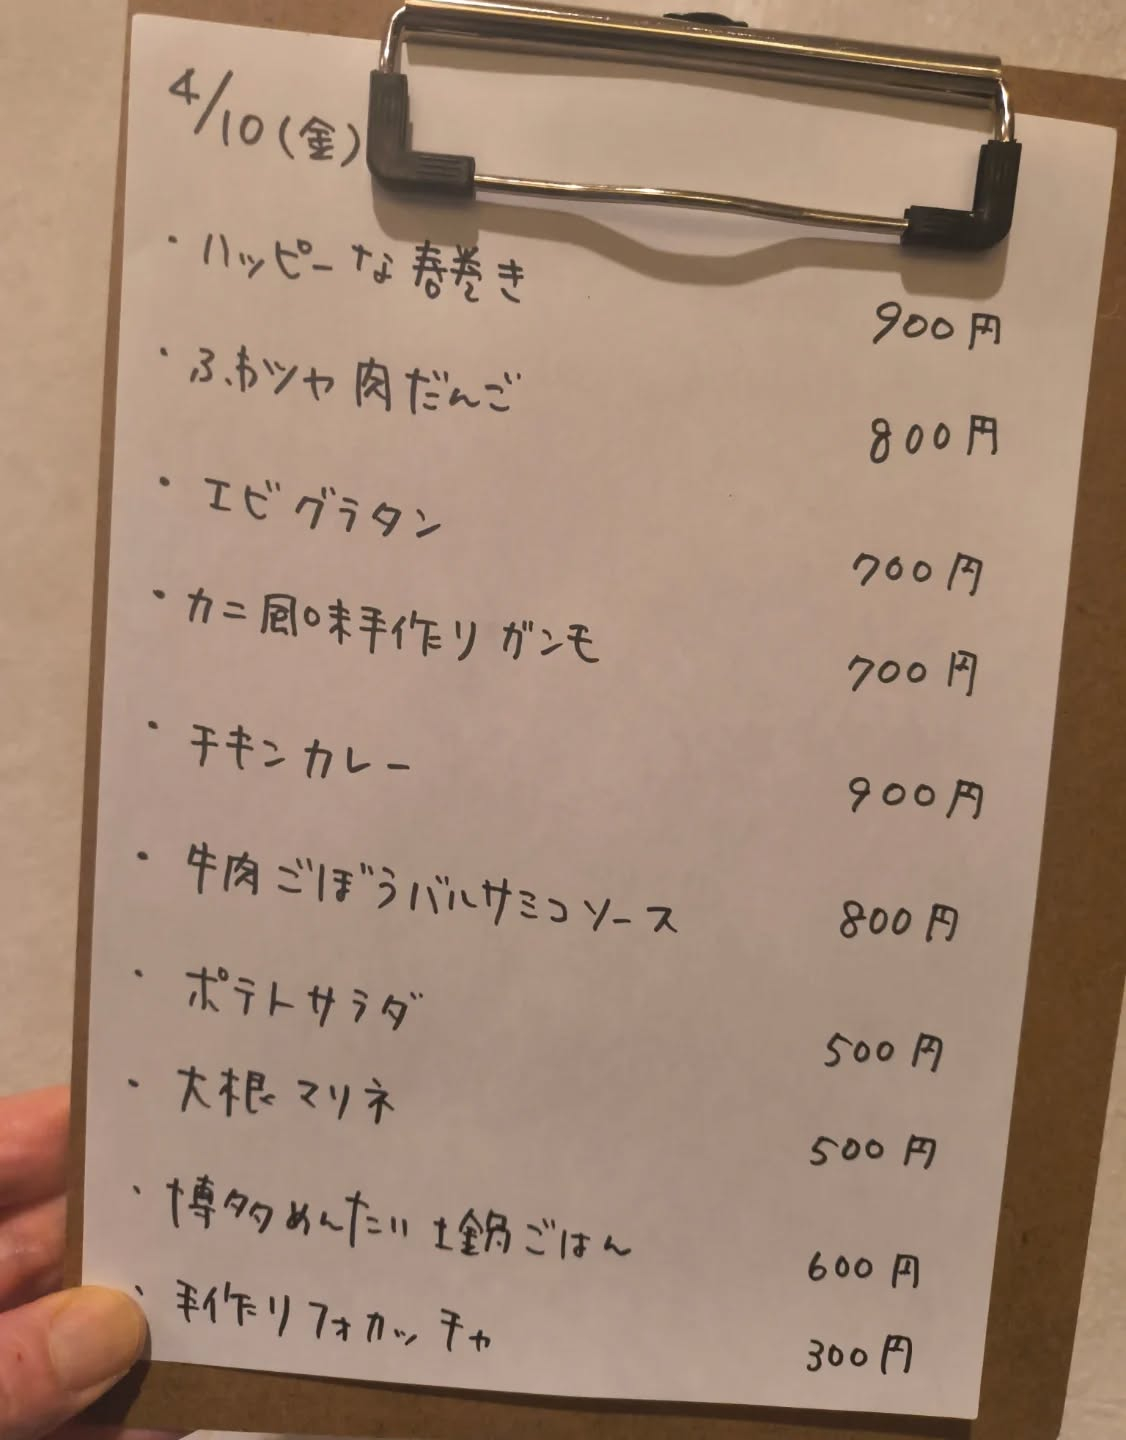 4/10(金)
・ハッピーな春巻き 900円
・ふわツヤ肉だんご 800円
・エビグラタン 700円
・カニ風味手作りガンモ 700円
・チキンカレー 900円
・牛肉ごぼうバルサミコソース 800円
・ポテトサラダ 500円
・大根マリネ 500円
・博多めんたい土鍋ごはん 600円
・手作りフォカッチャ 300円